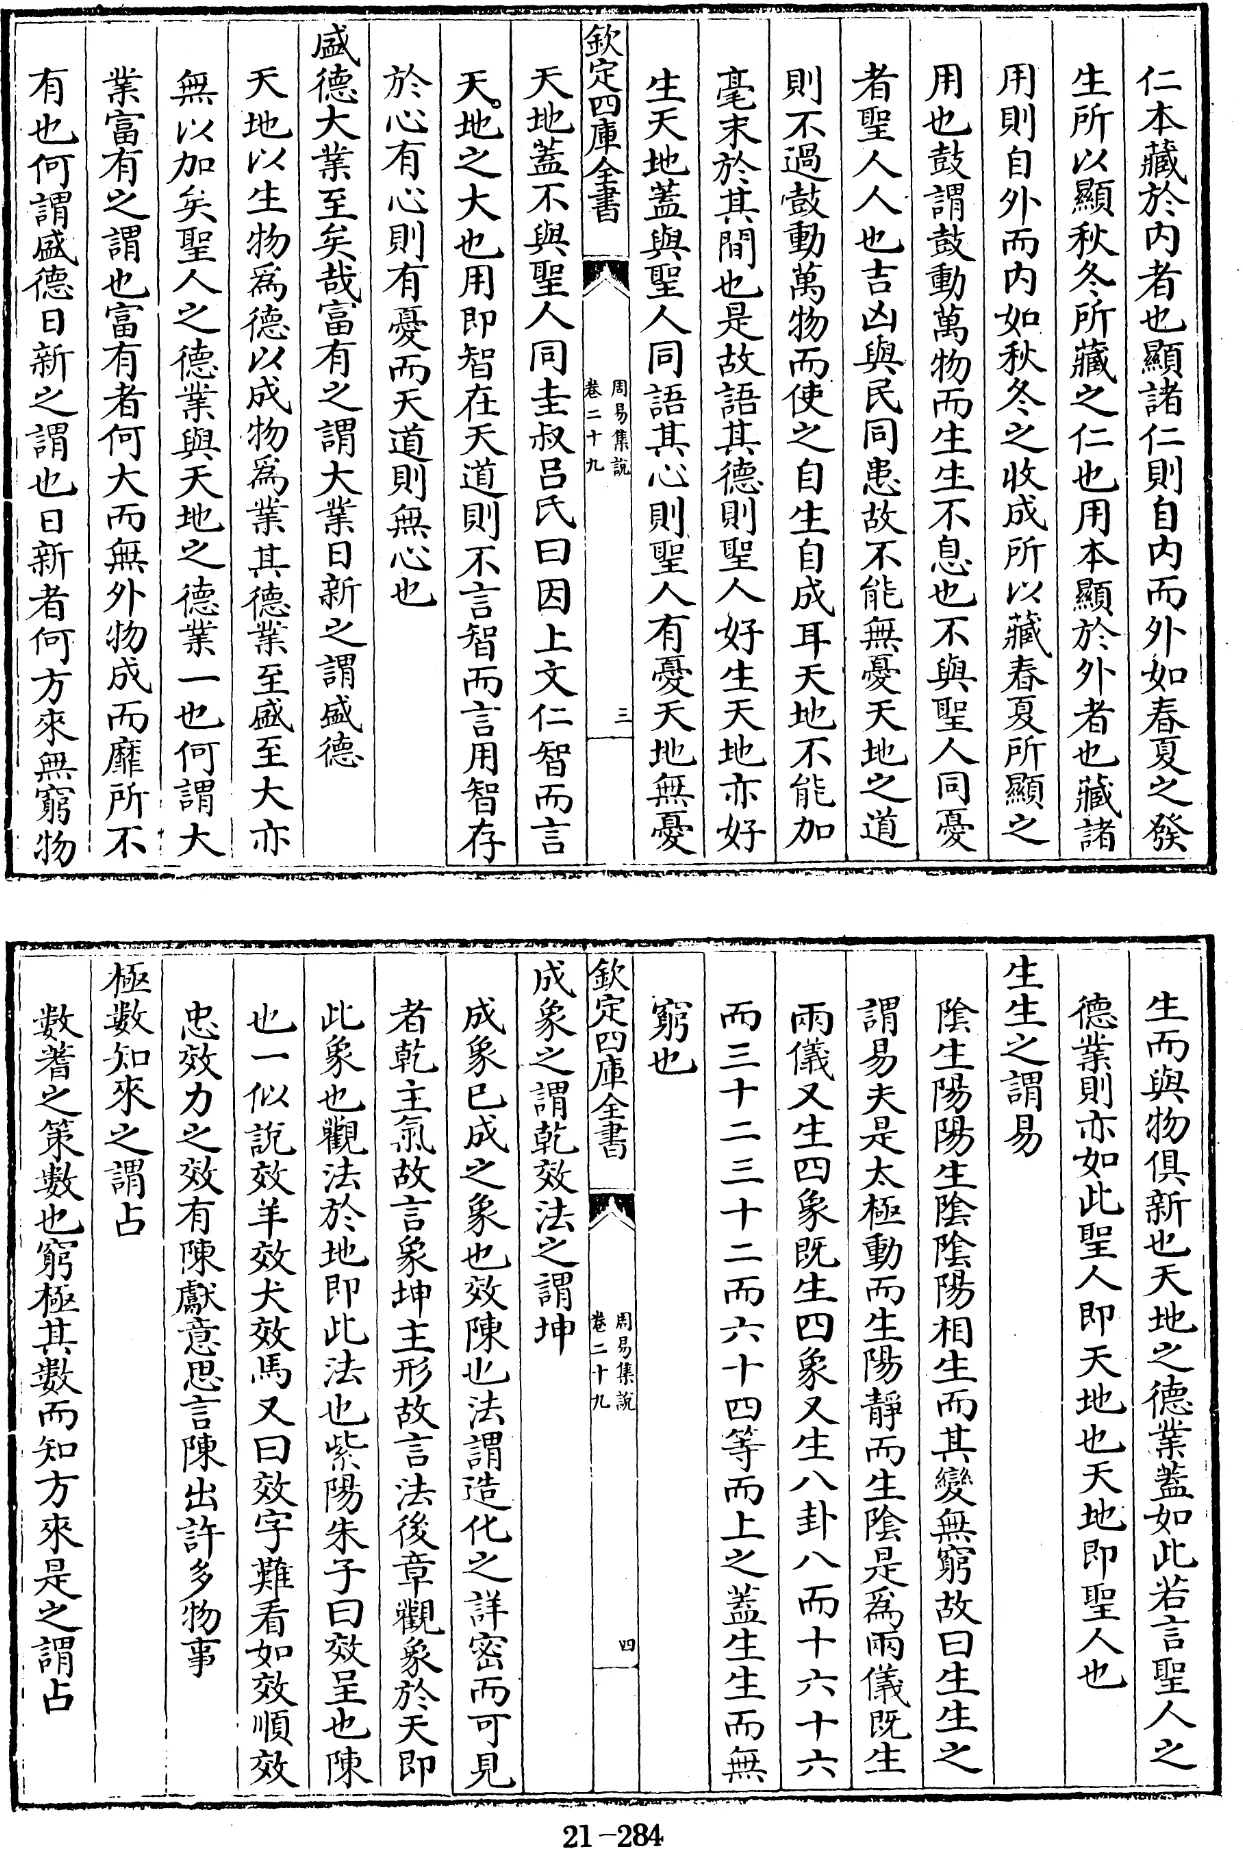 仁本藏於内者也顯諸仁則自内而外如春夏之發
生所以顯秋冬所藏之仁也用本顯於外者也藏諸
用則自外而内如秋冬之收成所以藏春夏所顯之
用也鼓謂鼓動萬物而生生不息也不與聖人同憂
者聖人人也吉凶與民同患故不能無憂天地之道
則不過鼓動萬物而使之自生自成耳天地不能加
毫末於其間也是故語其德則聖人好生天地亦好
生天地蓋與聖人同語其心則聖人有憂天地無憂
欽定四庫全書
周易集說
卷二十九
三
天地蓋不與聖人同圭叔呂氏曰因上文仁智而言
天地之大也用即智在天道則不言智而言用智存
於心有心則有憂而天道則無心也
盛德大業至矣哉富有之謂大業日新之謂盛德
天地以生物爲德以成物爲業其德業至盛至大亦
無以加矣聖人之德業與天地之德業一也何謂大
業富有之謂也富有者何大而無外物成而靡所不
有也何謂盛德日新之謂也日新者何方來無窮物
生而與物俱新也天地之德業蓋如此若言聖人之
德業則亦如此聖人即天地也天地即聖人也
生生之謂易
陰生陽陽生陰陰陽相生而其變無窮故曰生生之
謂易夫是太極動而生陽靜而生陰是爲兩儀既生
兩儀又生四象既生四象又生八卦八而十六十六
而三十二三十二而六十四等而上之蓋生生而無
窮也
欽定四庫全書
周易集說
卷二十九
四
成象之謂乾效法之謂坤
成象已成之象也效陳也法謂造化之詳密而可見
者乾主氣故言象坤主形故言法後章觀象於天即
此象也觀法於地即此法也紫陽朱子曰效呈也陳
也一似說效羊效犬效馬又曰效字難看如效順效
忠效力之效有陳獻意思言陳出許多物事
極數知來之謂占
數蓍之策數也窮極其數而知方來是之謂占
21-284